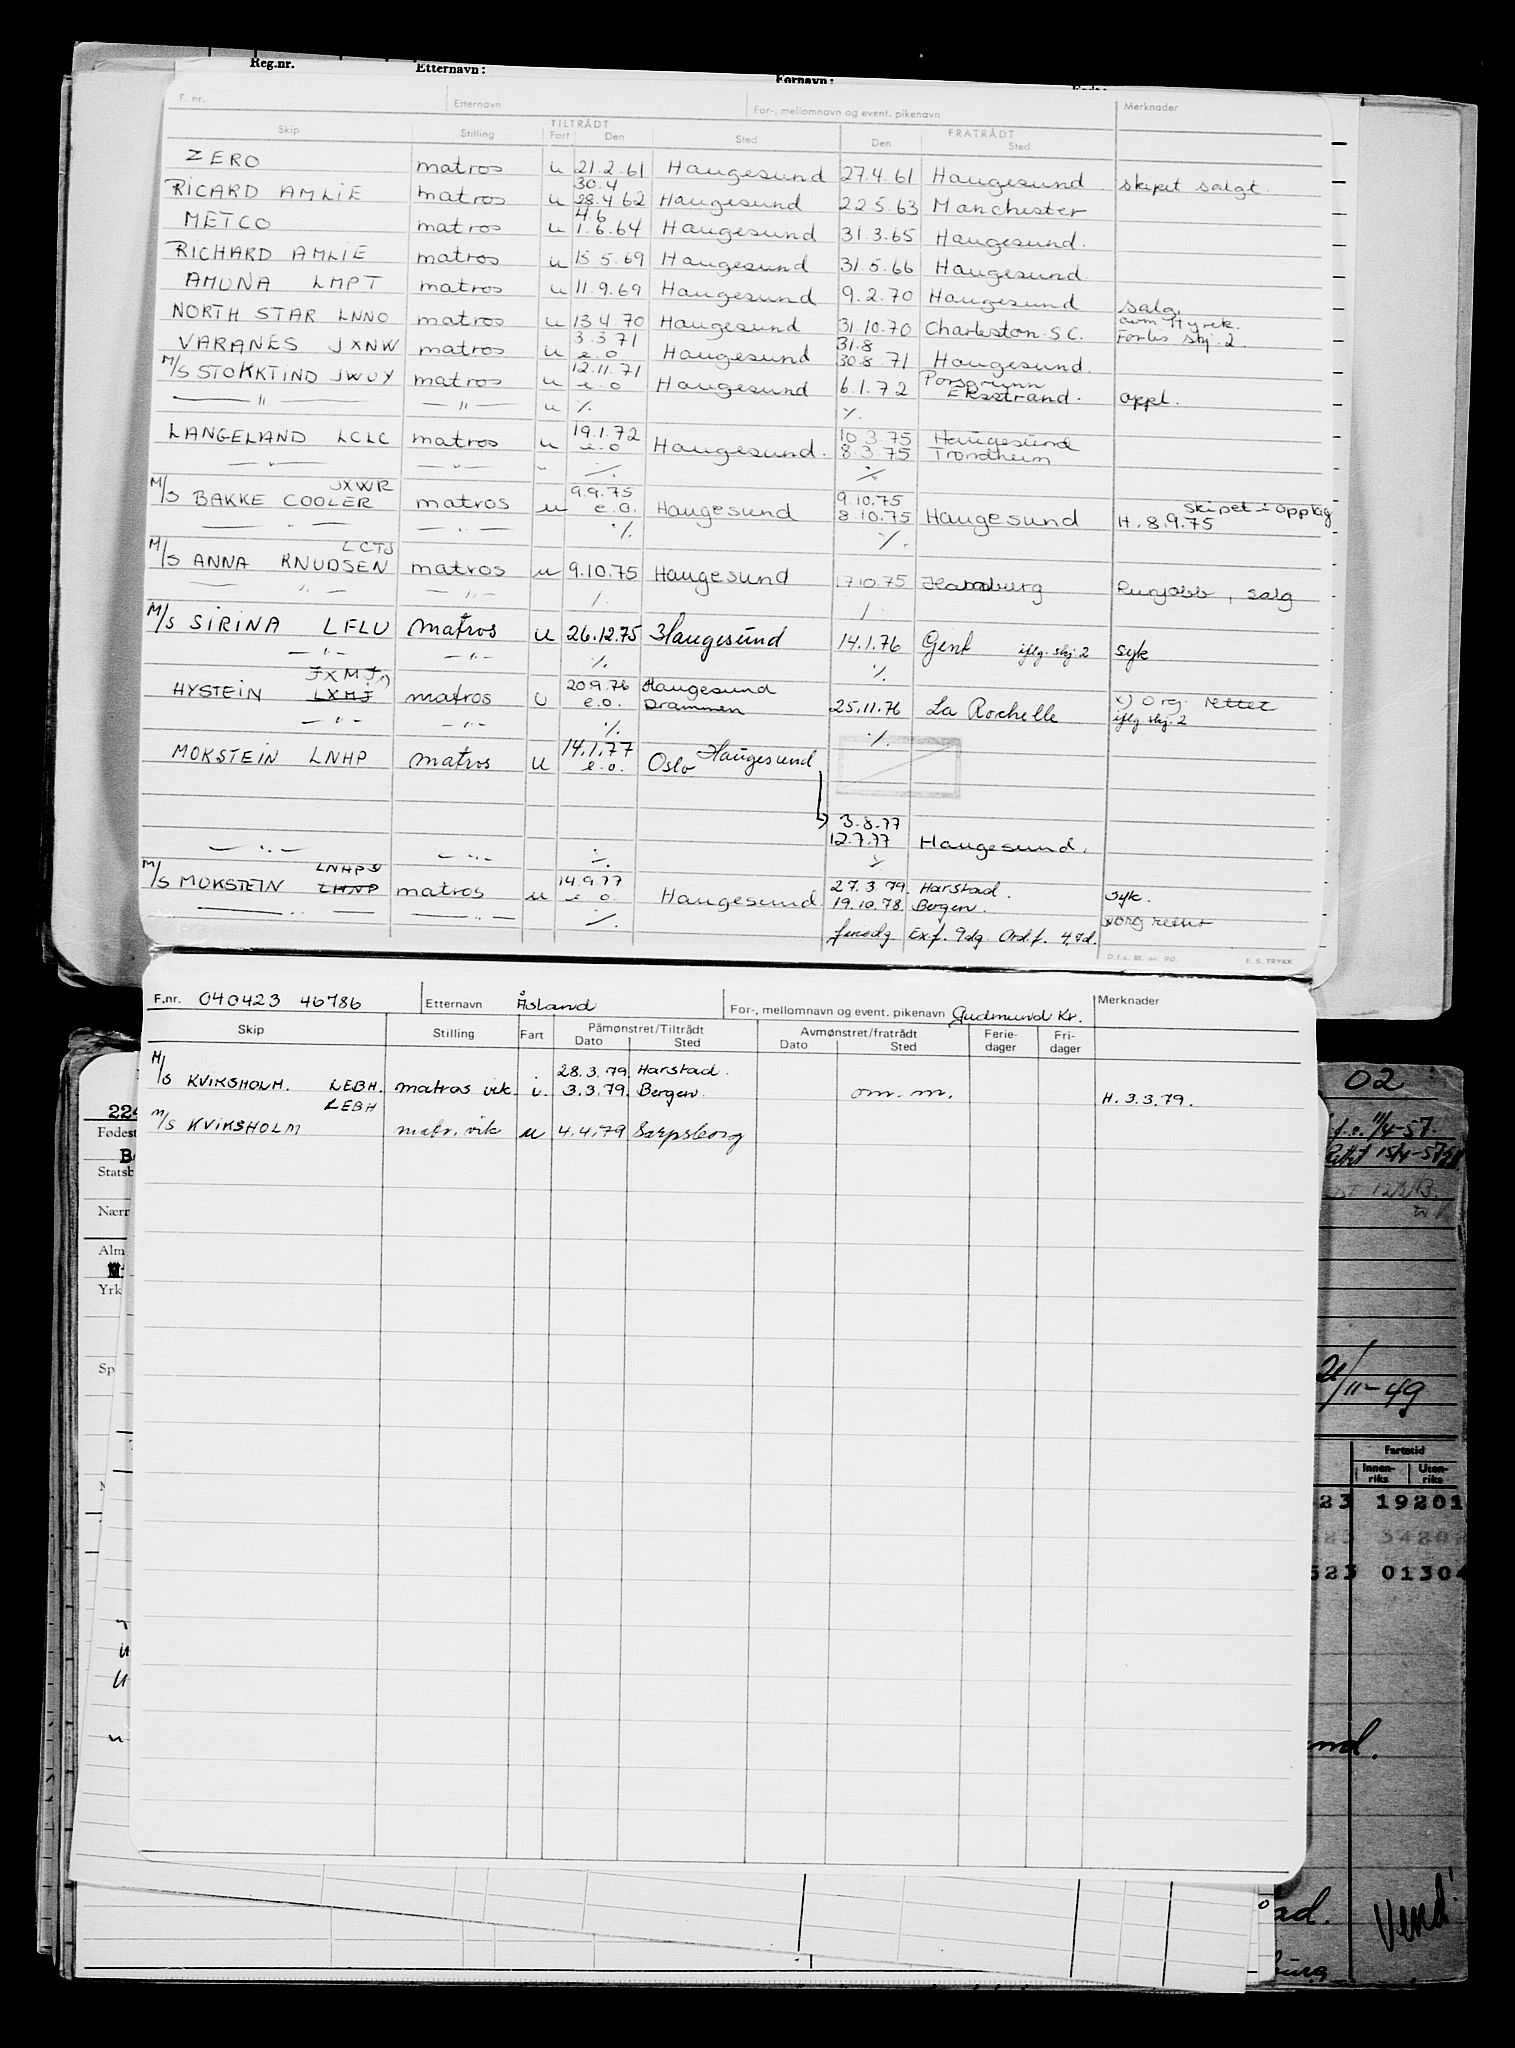 Reg.nr. Etternavn: Fornavn:
F. nr. Etternavn For-, mellomnavn og event. pikenavn Merknader
Skip Stilling TILTRÅDT Fart Den Sted FRATRÅDT Den Sted
ZERO matros u 21.2.61 Haugesund 27.4.61 Haugesund skipet solgt.
30.4
RICARD AMLIE matros u 28.4.62 Haugesund 22.5.63 Manchester
4.6
METCO matros u 1.6.64 Haugesund 31.3.65 Haugesund.
RICHARD AMLIE matros u 15.5.69 Haugesund 31.5.66 Haugesund
AMUNA LMPT matros u 11.9.69 Haugesund 9.2.70 Haugesund salg.
NORTH STAR LNNO matros u 13.4.70 Haugesund 31.10.70 Charleston S.C.
3.3.71 31.8
VARANES JXNW matros u e.o Haugesund 30.8.71 Haugesund.
12.11.71 Porsgrunn
M/S STOKKTIND JWUY matros u e.o Haugesund 6.1.72 Ekstrand. oppl.
— " — — " — u ٪. ٪.
19.1.72 10.3.75 Haugesund
LANGELAND LCLC matros u e.o Haugesund. 8.3.75 Trondheim
— " — — " — " ٪. ٪.
JXWR 9.9.75 9.10.75 skipet i opplag
M/S BAKKE COOLER matros u e.o. Haugesund 8.10.75 Haugesund H. 8.9.75
— " — — " — ٪. ٪.
LCTJ
M/S ANNA KNUDSEN matros u 9.10.75 Haugesund 17.10.75 Hamburg Runjobb, salg
— " — — " — ٪. ٪.
M/S SIRINA LFLU matros u 26.12.75 Haugesund 14.1.76 Gent iflg. skj 2 syk
— " — — " — ٪. ٪.
JXMJ x) 20.9.76 Haugesund
HYSTEIN LXMJ matros u e.o. Drammen 25.11.76 La Rochelle x) Org. rettet
iflg skj. 2
— " — — " — ٪. ٪.
14.1.77 Haugesund
MOKSTEIN LNHP matros u e.o. Oslo
3.8.77
12.7.77 Haugesund.
— " — — " — ٪. ٪.
LNHP 14.9.77 27.3.79. Harstad.
M/S MOKSTEIN LHNP matros u e.o. Haugesund 19.10.78. Bergen. syk.
— " — — " — ٪. x org rettet
feriedg Ex.f. 9dg. Ord.f. 47d.
D.f.s. Bl. nr. 90. E. S. TRYKK
F.nr. 040423 46786 Etternavn Åsland For-, mellomnavn og event. pikenavn Gudmund Kr. Merknader
Skip Stilling Fart Påmønstret/Tiltrådt Dato Sted Avmønstret/fratrådt Dato Sted Ferie-dager Fri-dager
28.3.79. Harstad.
M/S KVIKSHOLM. LEBH. matros vik. i. 3.3.79. Bergen. om. m. H. 3.3.79.
LEBH
M/S KVIKSHOLM matr. vik u 4.4.79 Sarpsborg
224
Fødest
Statsb
Nærr
Alm
Yrk
Sp
02
11/4-57.
Rettet 15/4-57
21/11-49
Fartstid
Innen-riks Uten-riks
23 19201
23 34202
523 01304
Vend!